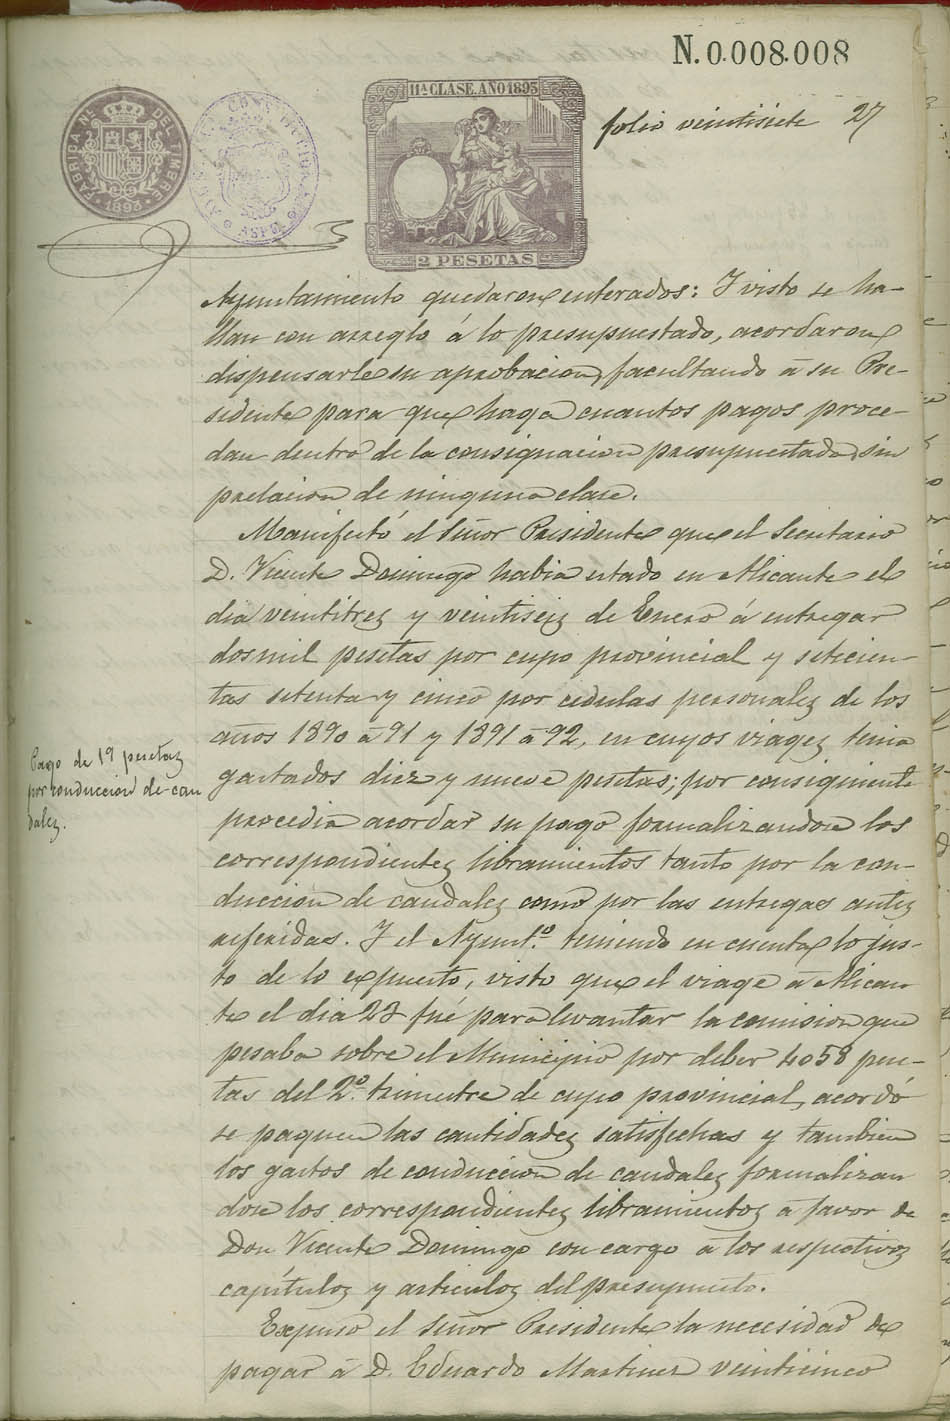 N.0.008.008
11ª CLASE. AÑO 1893
folio veintisiete 27
FABRICA NL. DEL TIMBRE
1893
ASPE
2 PESETAS
Ayuntamiento quedaron enterados: Y visto se ha-
llan con arreglo á lo presupuestado, acordaron
dispensarle su aprobacion, facultando á su Pre-
sidente para que haga cuantos pagos proce-
dan dentro de la consignacion presupuestada, sin
prelacion de ninguna clase.
Manifestó el Señor Presidente que el Secretario
D. Vicente Domingo habia estado en Alicante el
dia veintitres y veintiseis de Enero á entregar
dos mil pesetas por cupo provincial y setecien-
tas setenta y cinco por cedulas personales de los
años 1890 á 91 y 1891 á 92, en cuyos viages tenia
gastados diez y nueve pesetas; por consiguiente
procedia acordar su pago formalizandose los
correspondientes libramientos tanto por la con-
duccion de caudales como por las entregas antes
referidas. Y el Ayunt.º teniendo en cuenta lo jus-
to de lo expuesto, visto que el viage á Alican
te el dia 23 fué para levantar la comision que
pesaba sobre el Municipio por deber 4058 pese-
tas del 2.º trimestre de cupo provincial, acordó
se paguen las cantidades satisfechas y tambien
los gastos de conduccion de caudales formalizan
dose los correspondientes libramientos á favor de
Don Vicente Domingo con cargo á los respectivos
capítulos y articulos del presupuesto.
Expuso el Señor Presidente la necesidad de
pagar á D. Eduardo Martinez veinticinco
Pago de 19 pesetas
por conduccion de cau
dales.